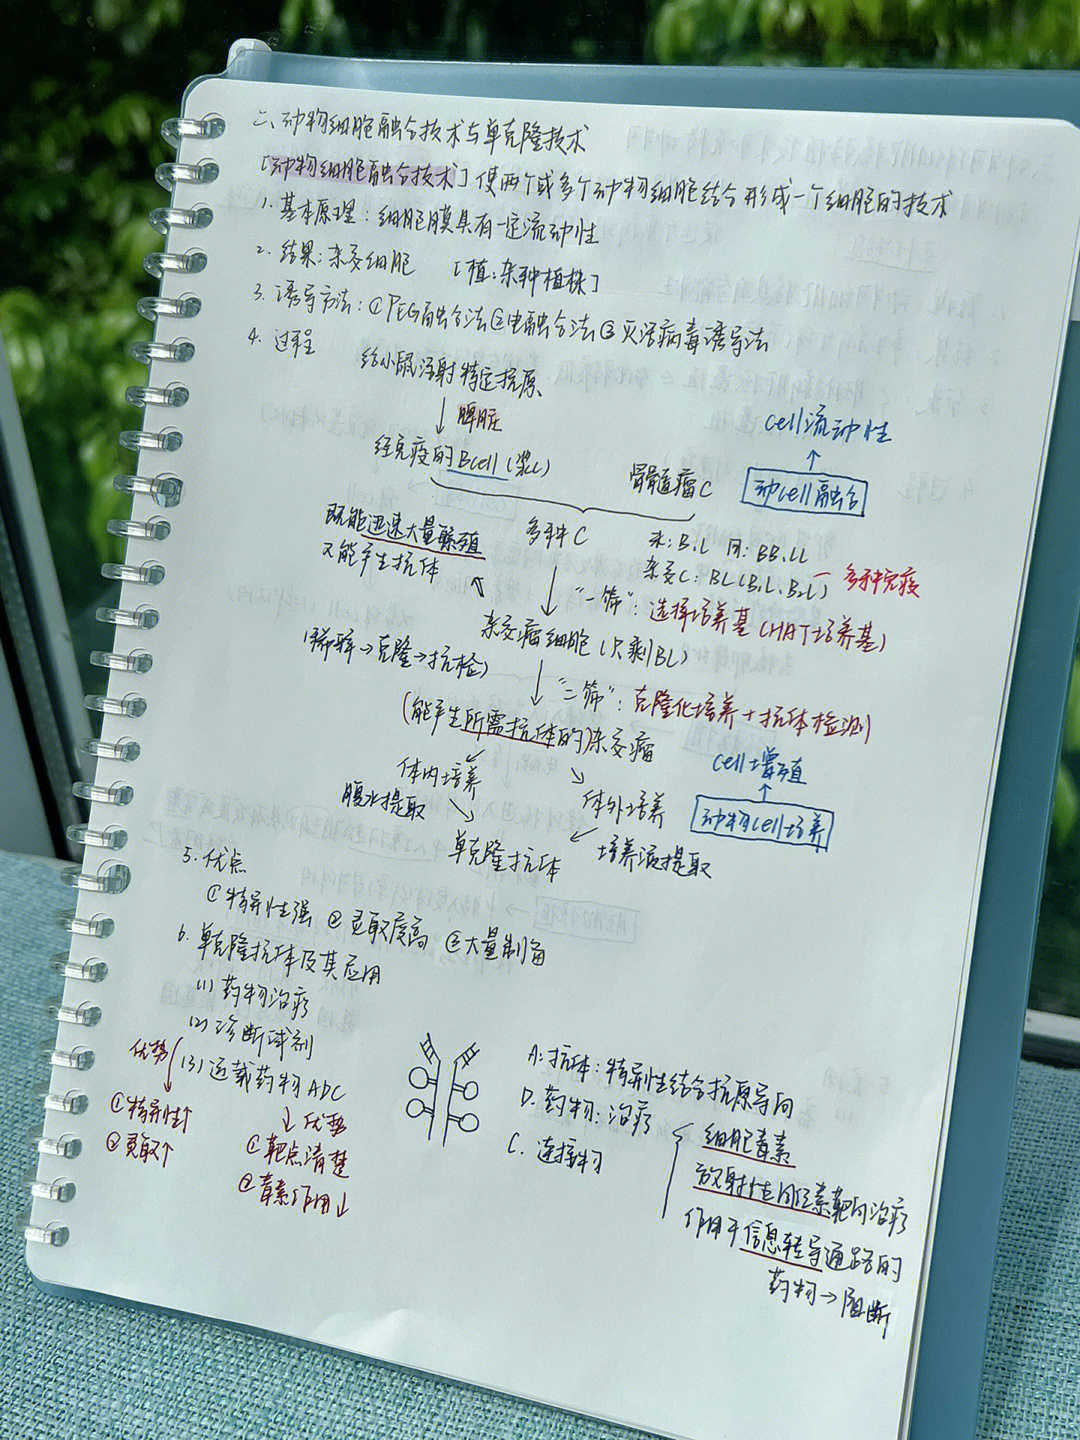 二、动物细胞融合技术与单克隆技术
[动物细胞融合技术] 使两个或多个动物细胞结合形成一个细胞的技术
1. 基本原理：细胞膜具有一定流动性
2. 结果：杂交细胞 [植：杂种植株]
3. 诱导方法：①PEG融合法②电融合法③灭活病毒诱导法
4. 过程
给小鼠注射特定抗原
↓脾脏
cell流动性
↑
经免疫的Bcell(浆C) 骨髓瘤C 动cell融合
既能迅速大量繁殖 多种C 未：B、L 同：BB、LL
又能产生抗体 杂交C：BL(B₁L、B₂L) — 多种免疫
↓ "一筛"：选择培养基(HAT培养基)
杂交瘤细胞(只剩BL)
(稀释→克隆→抗检)
↓ "二筛"：克隆化培养+抗体检测
(能产生所需抗体的)杂交瘤
cell增殖
↑
体内培养 体外培养 动物cell培养
腹水提取 培养液提取
单克隆抗体
5. 优点
①特异性强 ②灵敏度高 ③大量制备
6. 单克隆抗体及其应用
(1) 药物治疗
(2) 诊断试剂
优势
(3) 运载药物 ADC
①特异性↑
②灵敏↑
↓优势
①靶点清楚
②毒素作用↓
A：抗体：特异性结合抗原导向
D. 药物：治疗
C. 连接物
细胞毒素
放射性同位素靶向治疗
作用于信息转导通路的
药物→阻断